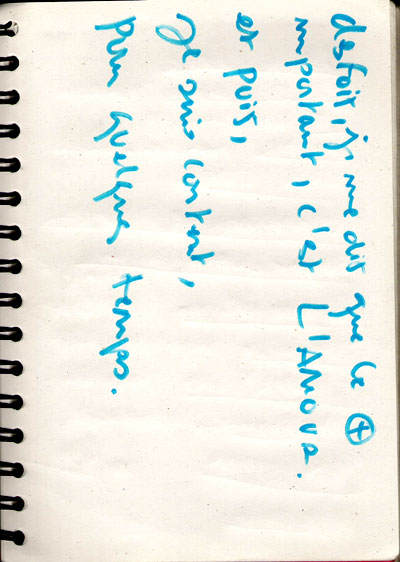 desfois, je me dis que le ⊕
important, c'est L'AMOUR.
et puis,
Je suis content,
pour quelque temps.